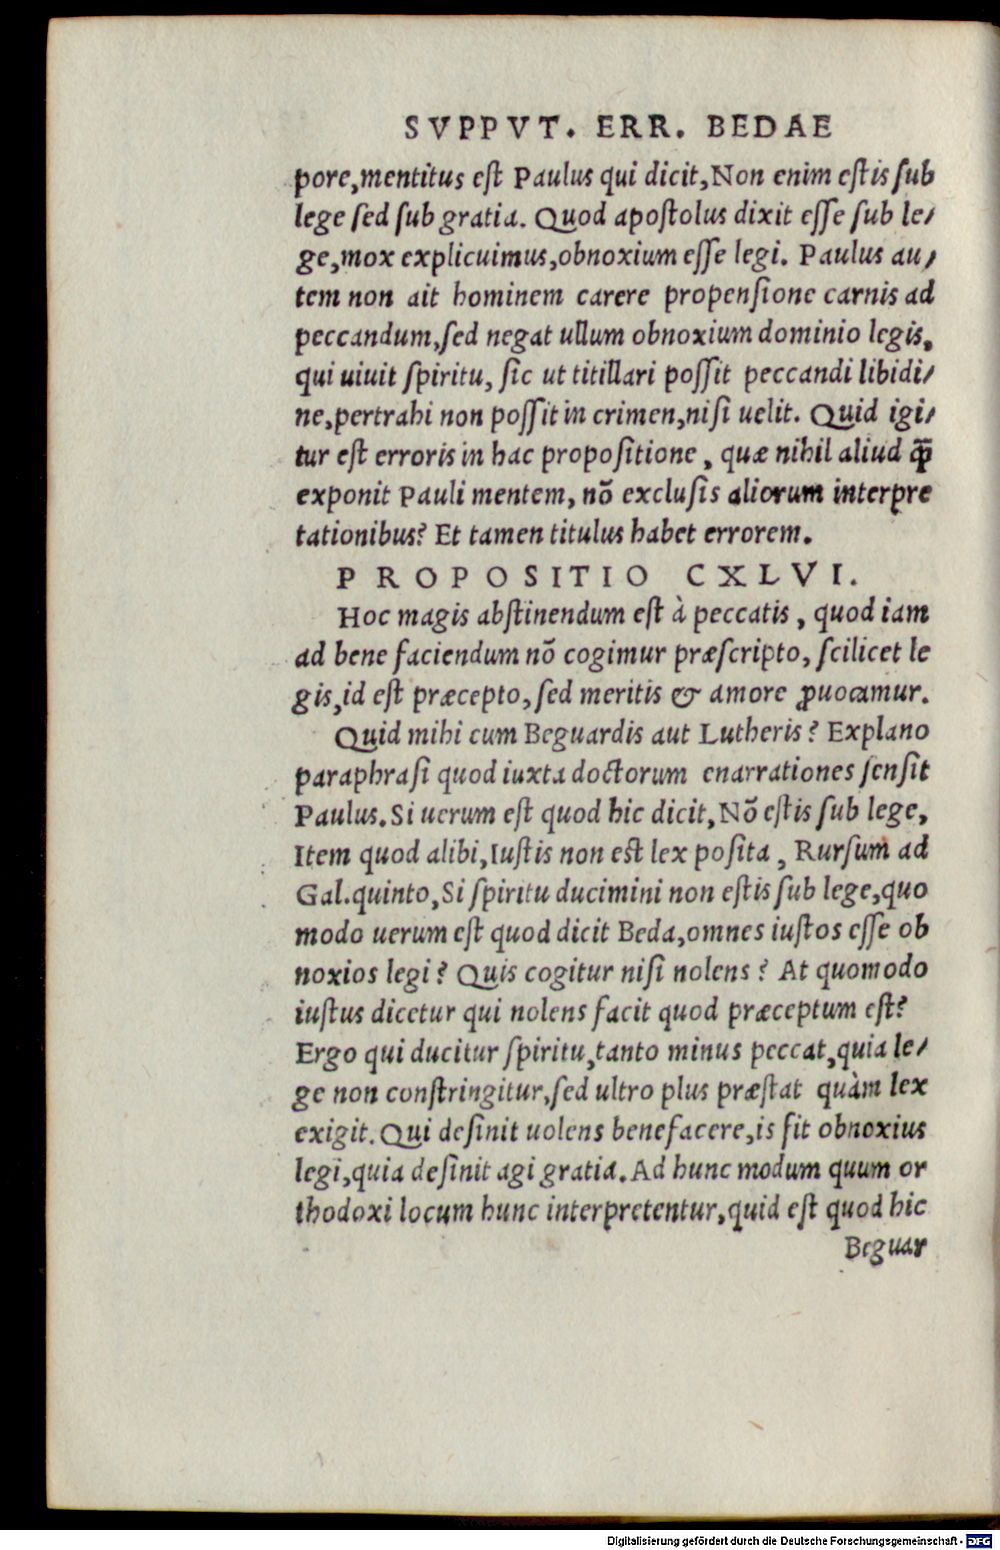 SVPPVT. ERR. BEDAE
pore,mentitus eſt Paulus qui dicit,Non enim eſtis ſub
lege ſed ſub gratia. Quod apoſtolus dixit eſſe ſub le/
ge,mox explicuimus,obnoxium eſſe legi. Paulus au/
tem non ait hominem carere propenſione carnis ad
peccandum,ſed negat ullum obnoxium dominio legis,
qui uiuit ſpiritu, ſic ut titillari poſſit peccandi libidi/
ne,pertrahi non poſſit in crimen,niſi uelit. Quid igi/
tur eſt erroris in hac propoſitione, quæ nihil aliud ꝙ̃
exponit Pauli mentem, nõ excluſis aliorum interpre
tationibus? Et tamen titulus habet errorem.
PROPOSITIO CXLVI.
Hoc magis abſtinendum eſt à peccatis, quod iam
ad bene faciendum nõ cogimur præſcripto, ſcilicet le
gis,id eſt præcepto, ſed meritis & amore ꝓuocamur.
Quid mihi cum Beguardis aut Lutheris? Explano
paraphraſi quod iuxta doctorum enarrationes ſenſit
Paulus. Si uerum eſt quod hic dicit, Nõ eſtis ſub lege,
Item quod alibi, Iuſtis non eſt lex poſita, Rurſum ad
Gal.quinto, Si ſpiritu ducimini non eſtis ſub lege,quo
modo uerum eſt quod dicit Beda,omnes iuſtos eſſe ob
noxios legi? Quis cogitur niſi nolens? At quomodo
iuſtus dicetur qui nolens facit quod præceptum eſt?
Ergo qui ducitur ſpiritu,tanto minus peccat,quia le/
ge non conſtringitur,ſed ultro plus præſtat quàm lex
exigit. Qui deſinit uolens benefacere,is fit obnoxius
legi,quia deſinit agi gratia. Ad hunc modum quum or
thodoxi locum hunc interpretentur,quid eſt quod hic
Beguar
Digitalisierung gefördert durch die Deutsche Forschungsgemeinschaft - DFG